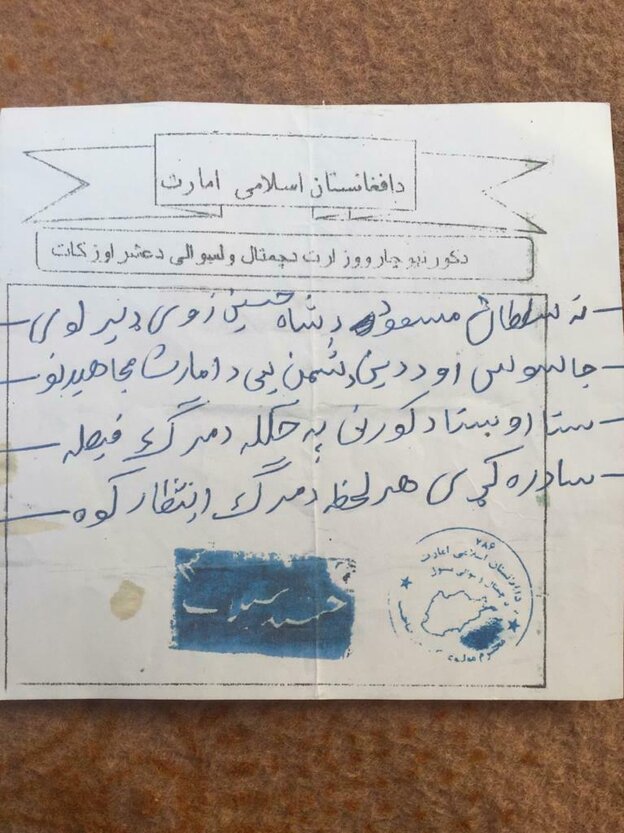 دافغانستان اسلامی امارت
دکورنیو چارو وزارت دچمتال ولسوالی دعشر اوزکات
ته سلطان مسعود دشاه حسین زوی ډیر لوی
جاسوس او ددین دشمن یی دامارت مجاهیدینو
ستا او ستا دکورنی په حکله دمرګ فیصله
سادره کړی هر لحظه دمرګ اینتظار کوه
۷۸۶
دافغانستان اسلامی امارت